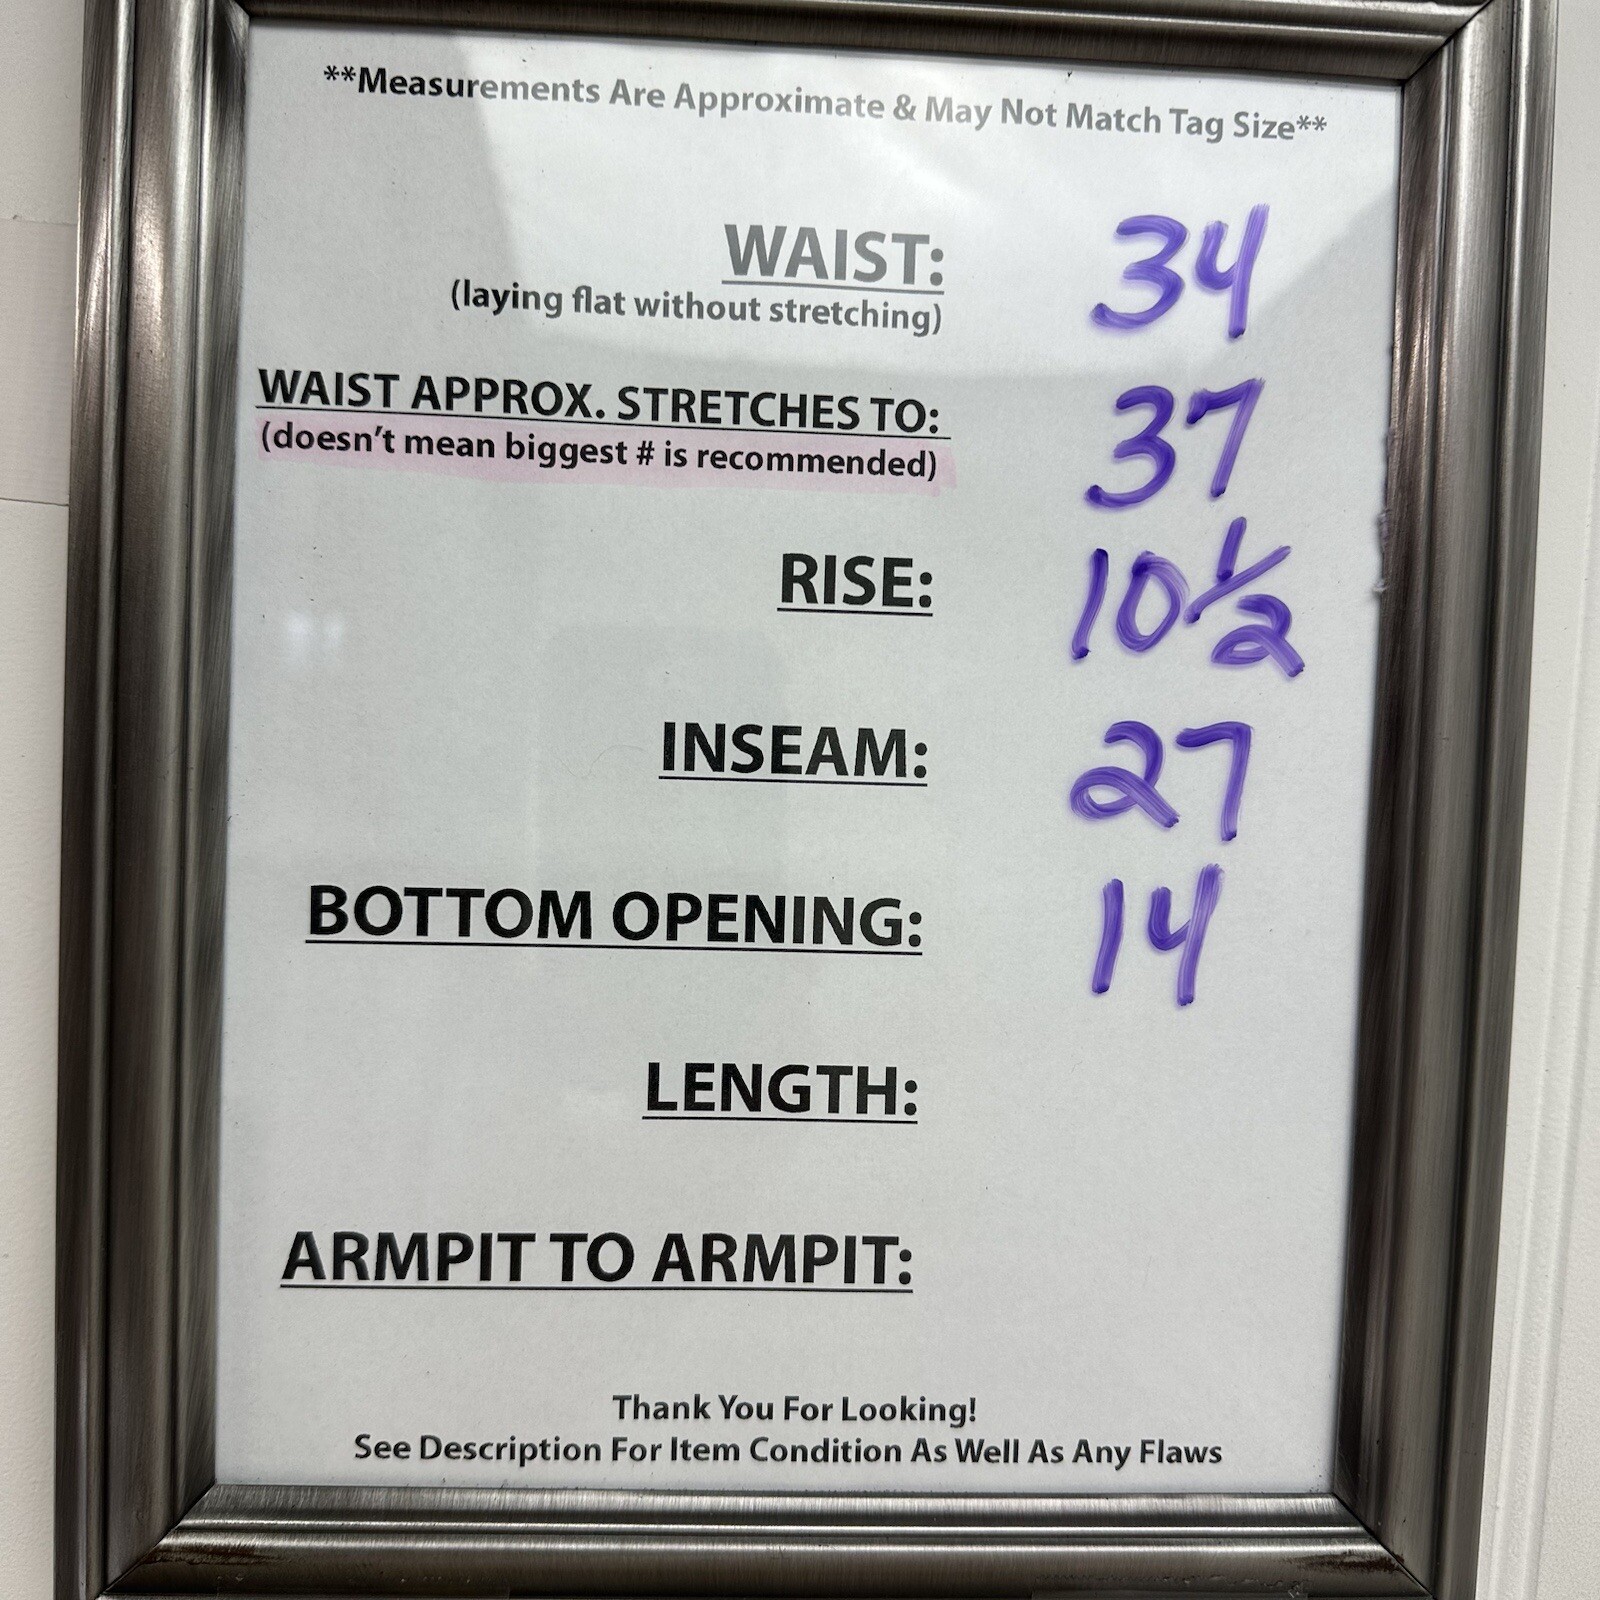 **Measurements Are Approximate & May Not Match Tag Size**
WAIST: 34
(laying flat without stretching)
WAIST APPROX. STRETCHES TO: 37
(doesn't mean biggest # is recommended)
RISE: 10 1/2
INSEAM: 27
BOTTOM OPENING: 14
LENGTH:
ARMPIT TO ARMPIT:
Thank You For Looking!
See Description For Item Condition As Well As Any Flaws